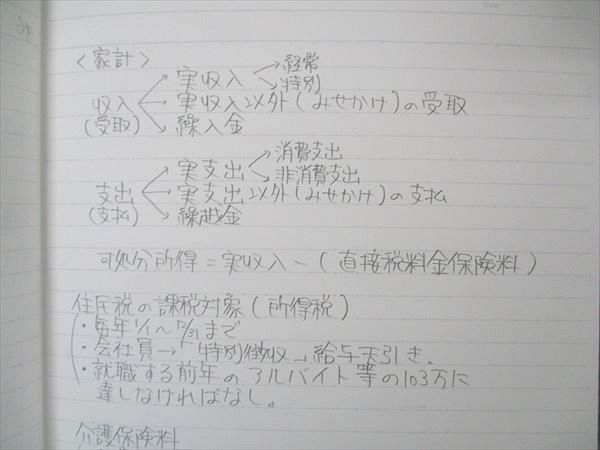 〈家計〉
経常
実収入
特別
収入
実収入以外(みせかけ)の受取
(受取)
繰入金
消費支出
実支出
非消費支出
支出
実支出以外(みせかけ)の支払
(支払)
繰越金
可処分所得=実収入-(直接税料金保険料)
住民税の課税対象(所得税)
・毎年1/1~12/31まで
・会社員→「特別徴収」給与天引き、
・就職する前年のアルバイト等の103万に
達しなければなし。
介護保険料